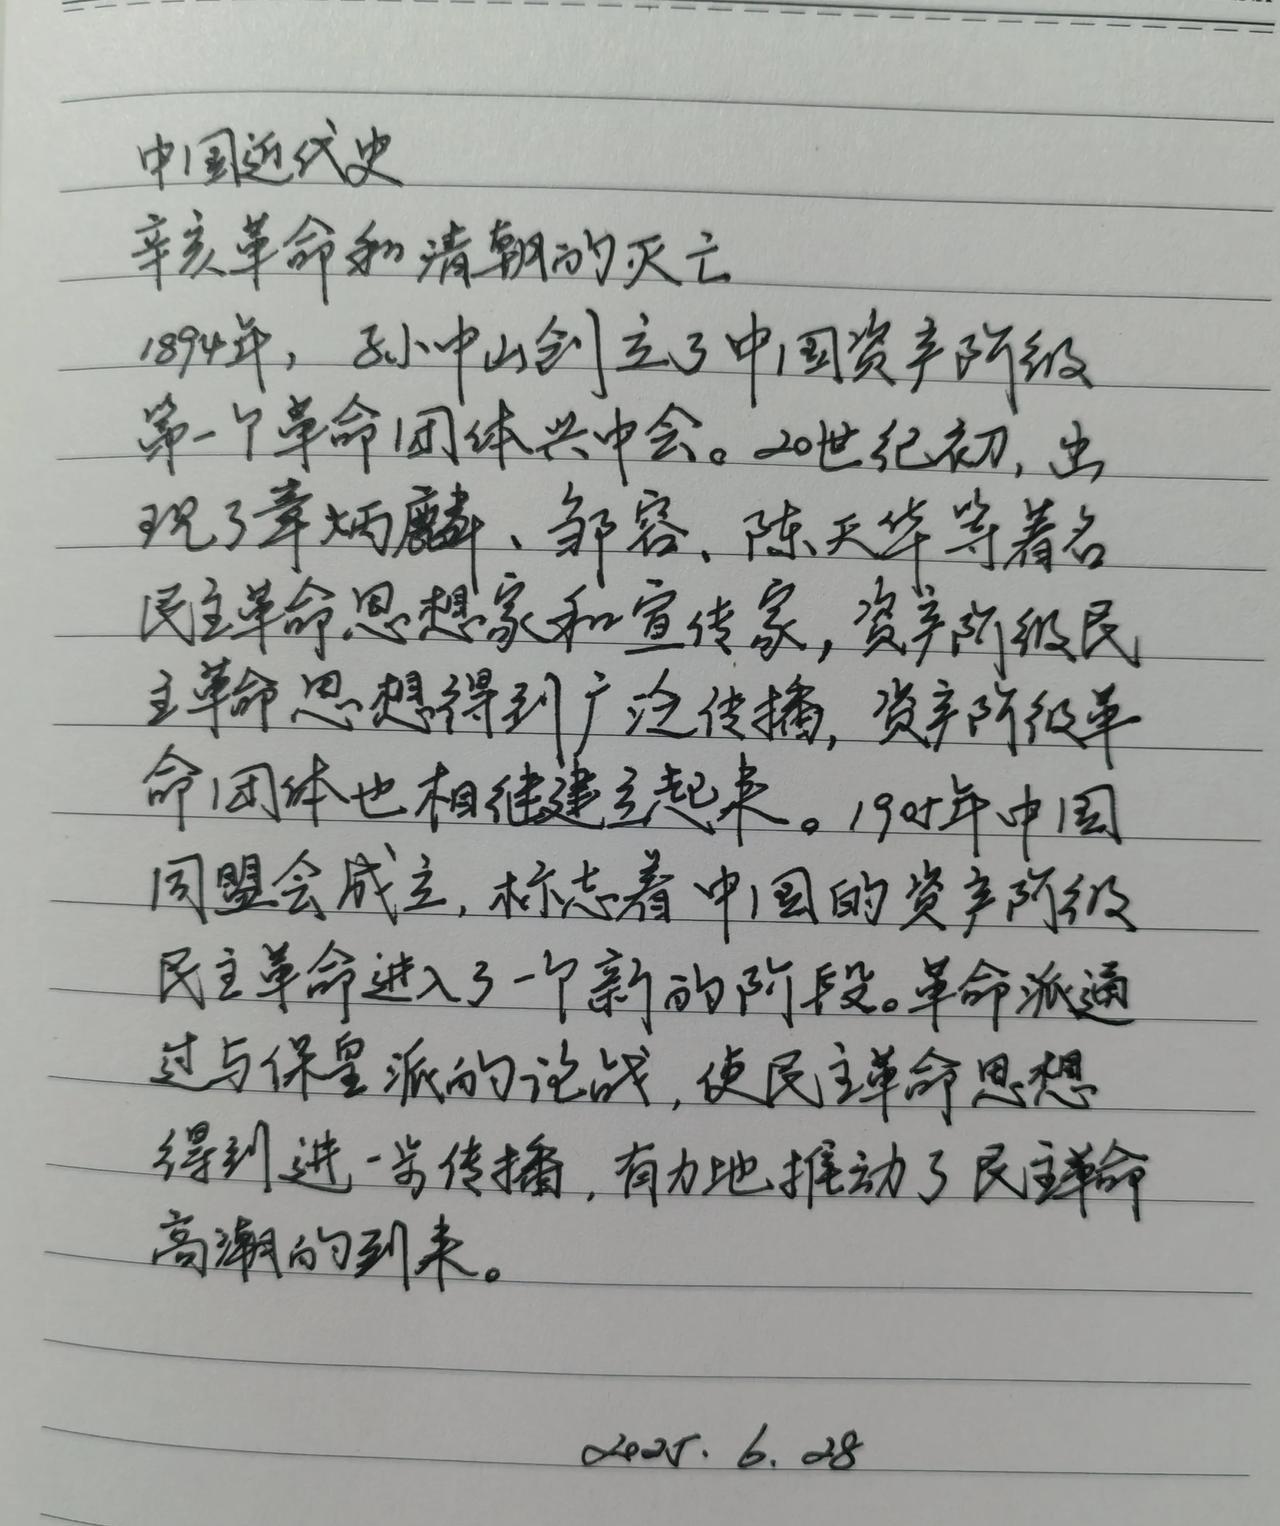 中国近代史
辛亥革命和清朝的灭亡
1894年，孙中山创立了中国资产阶级
第一个革命团体兴中会。20世纪初，出
现了章炳麟、邹容、陈天华等著名
民主革命思想家和宣传家，资产阶级民
主革命思想得到广泛传播，资产阶级革
命团体也相继建立起来。1905年中国
同盟会成立，标志着中国的资产阶级
民主革命进入了一个新的阶段。革命派通
过与保皇派的论战，使民主革命思想
得到进一步传播，有力地推动了民主革命
高潮的到来。
2025.6.28